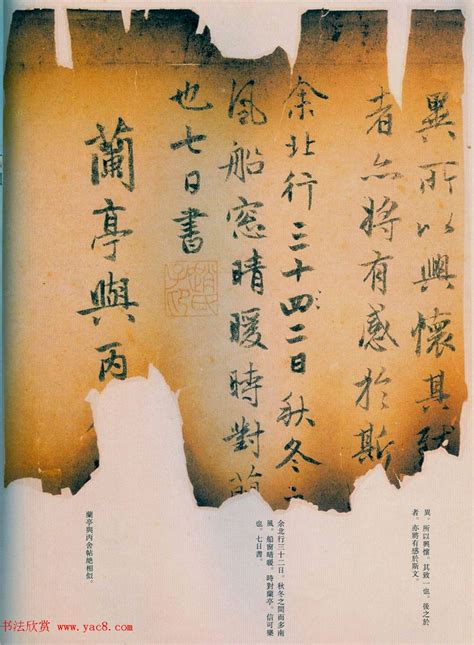 異所以興懷其致
者亦將有感於斯
余北行三十四二日秋冬之
風船窓晴暖時對
也七日書
趙氏子昂
蘭亭與丙
異。所以興懷。其致一也。後之於
者。亦將有感於斯文。
余北行三十二日。秋冬之間而多南
風。船窗晴暖。時對蘭亭。信可樂
也。七日書。
蘭亭與丙舍帖絶相似。
书法欣赏 www.yac8.com